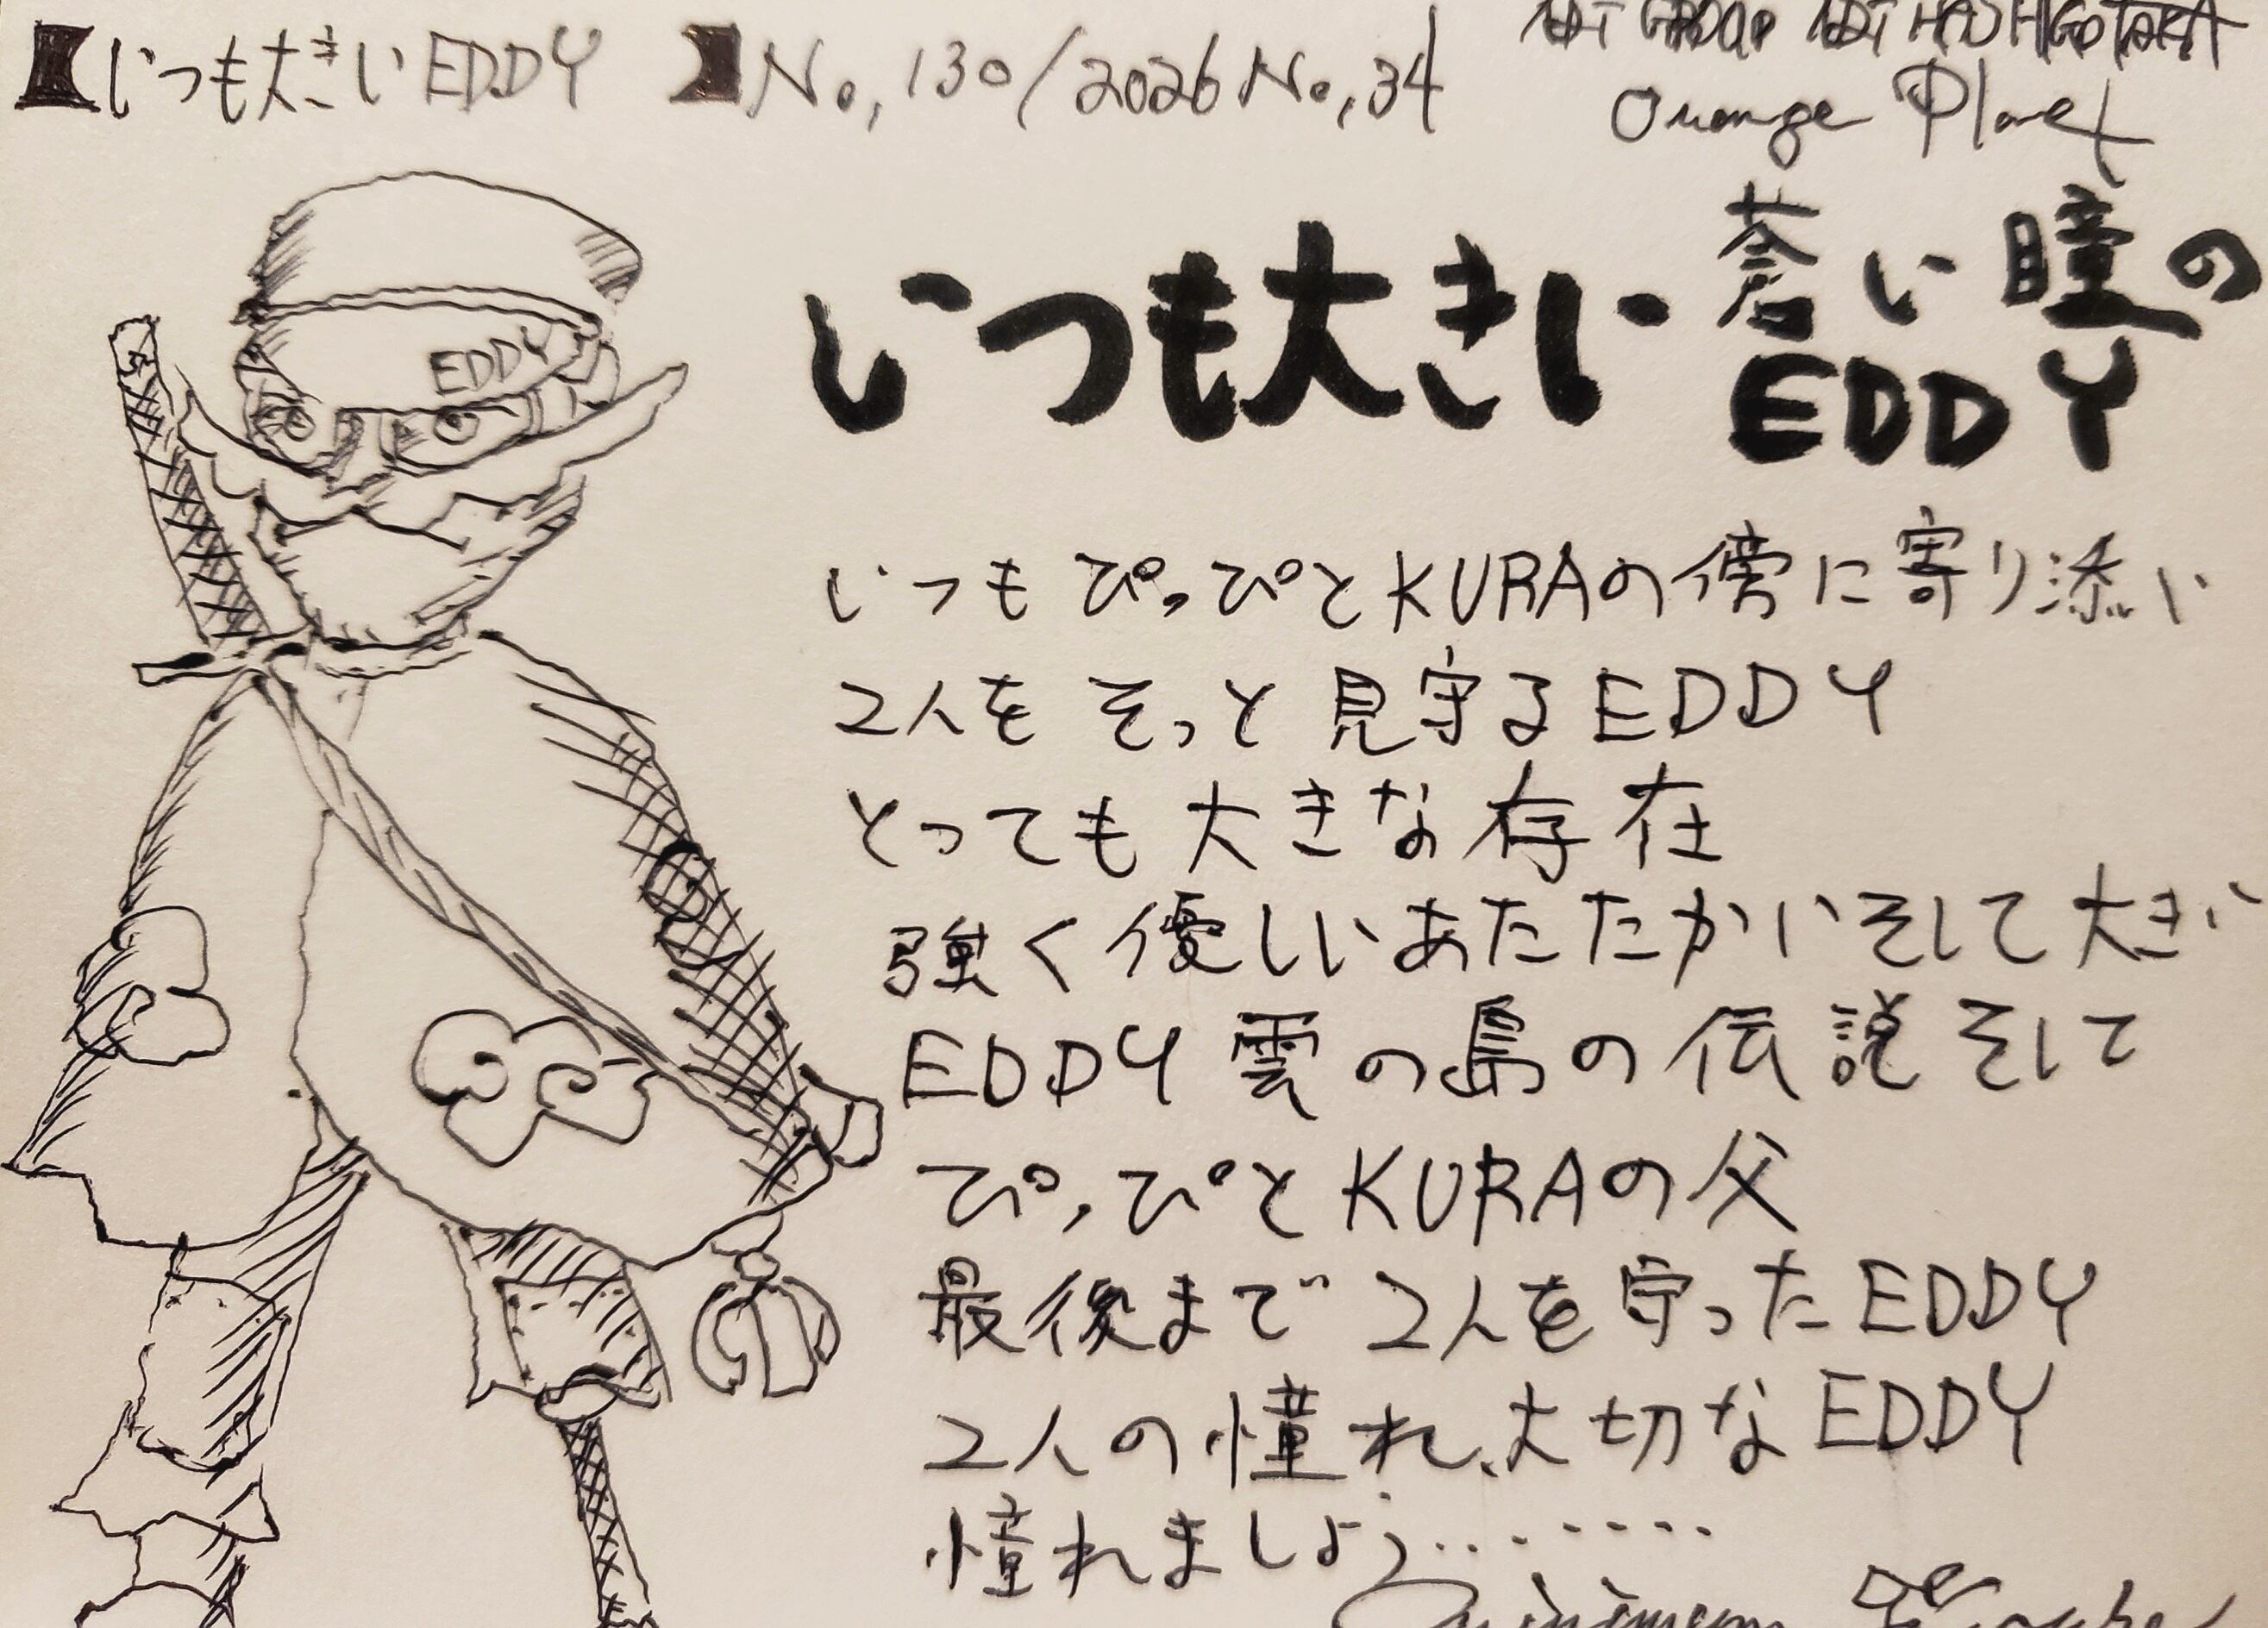 いつも大きいEDDY No,130/2026 No,34
ART GROUP ART HASHIGOTAKA
Orange Planet
いつも大きい蒼い瞳の
EDDY
EDDY
いつもぴっぴとKURAの傍に寄り添い
2人をそっと見守るEDDY
とっても大きな存在
強く優しいあたたかいそして大きい
EDDY雲の島の伝説そして
ぴっぴとKURAの父
最後まで2人を守ったEDDY
2人の憧れ、大切なEDDY
憧れましょう.........